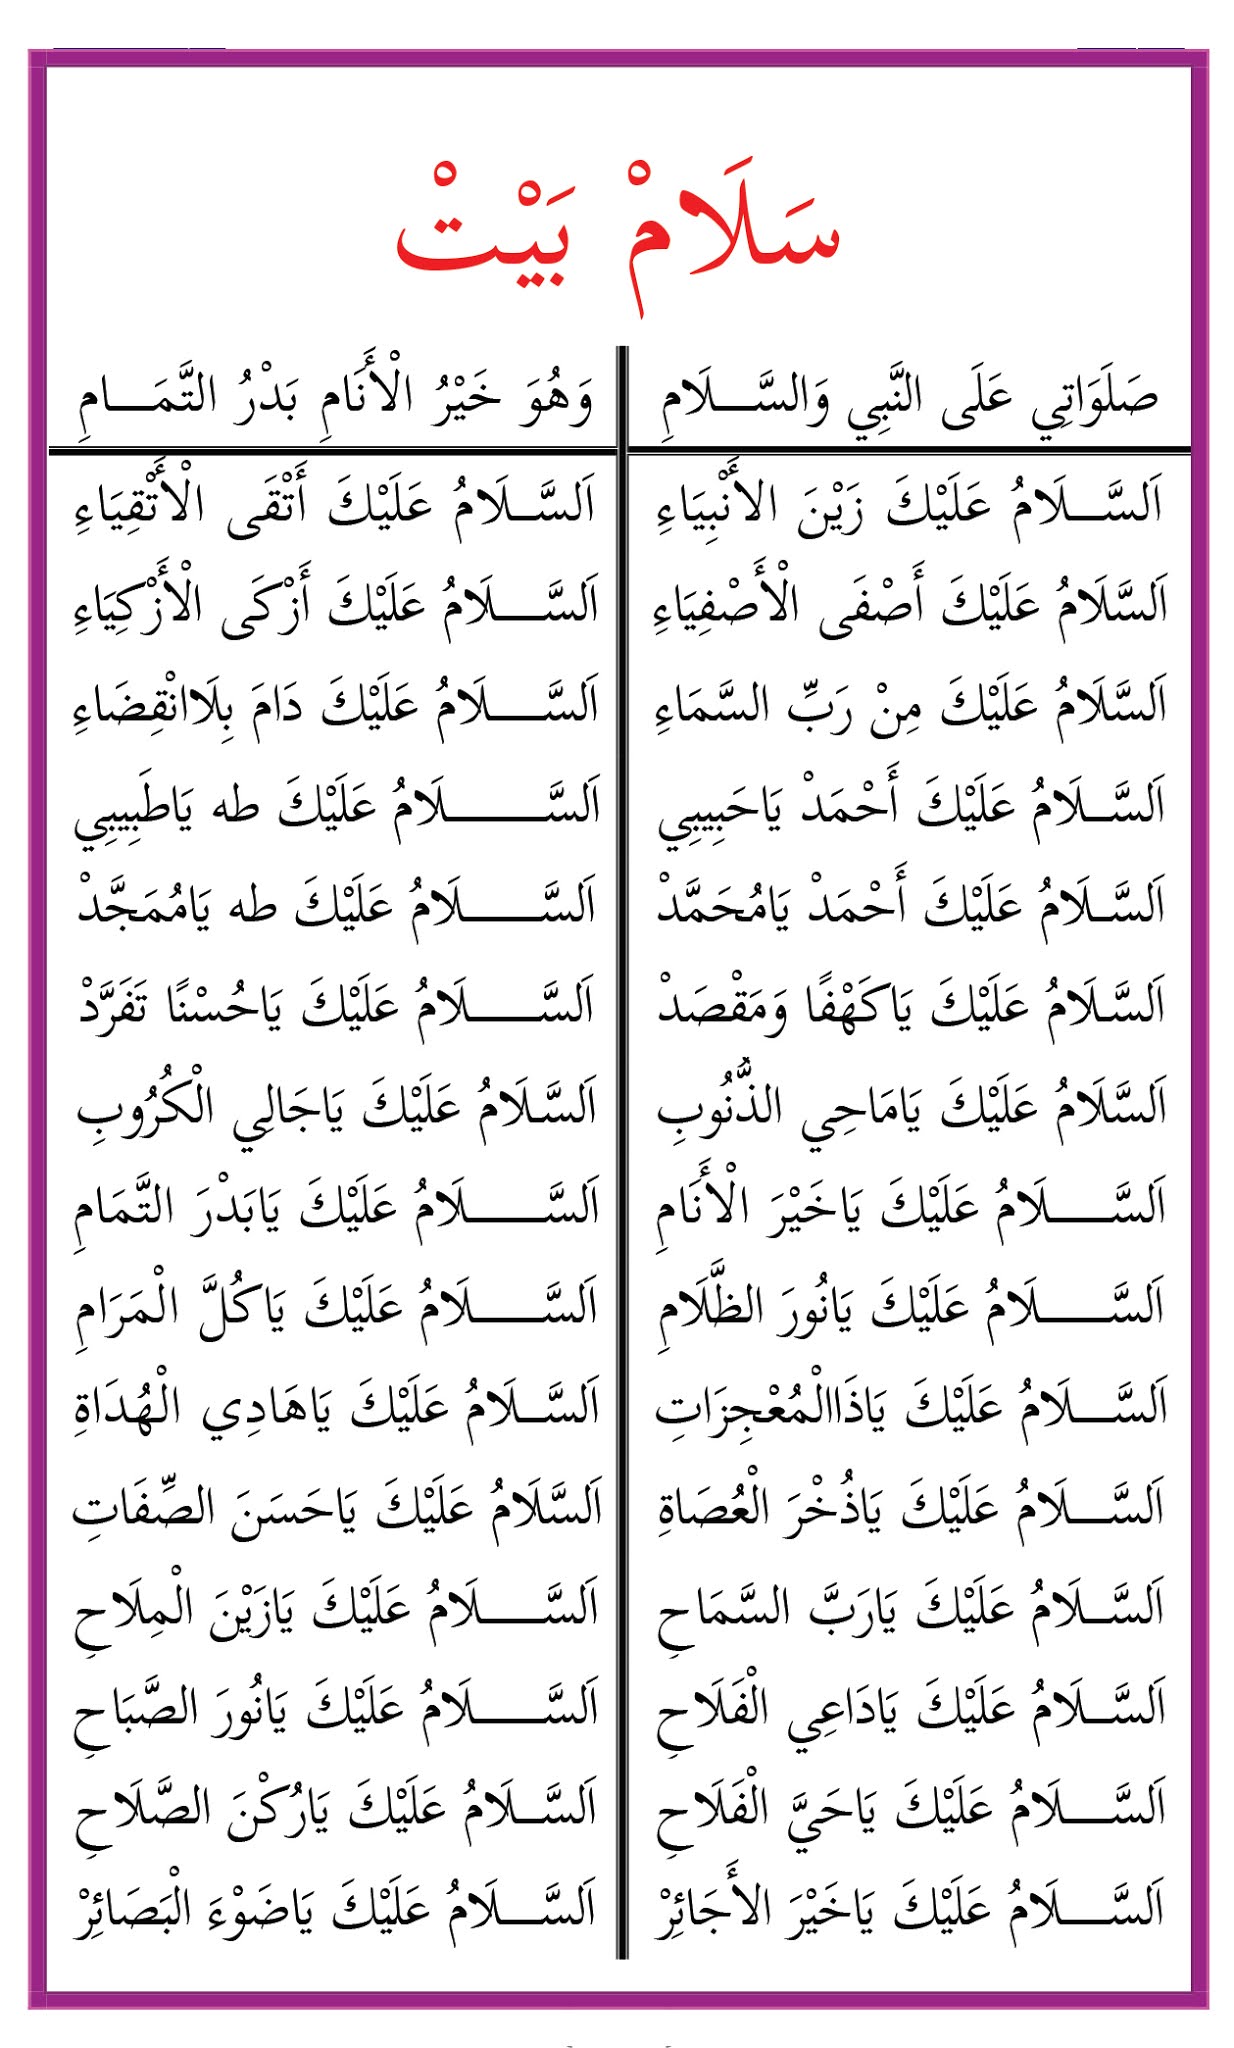 سَلَامْ بَيْتْ
صَلَوَاتِي عَلَى النَّبِي وَالسَّـــلَامِ وَهُوَ خَيْرُ الْأَنَامِ بَدْرُ التَّمَـــامِ
اَلسَّـــلَامُ عَلَيْكَ زَيْنَ الأَنْبِيَاءِ اَلسَّـــلَامُ عَلَيْكَ أَتْقَى الْأَتْقِيَاءِ
اَلسَّلَامُ عَلَيْكَ أَصْفَى الْأَصْفِيَاءِ اَلسَّـــلَامُ عَلَيْكَ أَزْكَى الْأَزْكِيَاءِ
اَلسَّلَامُ عَلَيْكَ مِنْ رَبِّ السَّمَاءِ اَلسَّـــلَامُ عَلَيْكَ دَامَ بِلَاانْقِضَاءِ
اَلسَّـــلَامُ عَلَيْكَ أَحْمَدْ يَاحَبِيبِي اَلسَّـــلَامُ عَلَيْكَ طه يَاطَبِيبِي
اَلسَّـــلَامُ عَلَيْكَ أَحْمَدْ يَامُحَمَّدْ اَلسَّـــلَامُ عَلَيْكَ طه يَامُمَجَّدْ
اَلسَّـلَامُ عَلَيْكَ يَاكَهْفًا وَمَقْصَدْ اَلسَّـــلَامُ عَلَيْكَ يَاحُسْنًا تَفَرَّدْ
اَلسَّلَامُ عَلَيْكَ يَامَاحِي الذُّنُوبِ اَلسَّـلَامُ عَلَيْكَ يَاجَالِي الْكُرُوبِ
اَلسَّـــلَامُ عَلَيْكَ يَاخَيْرَ الْأَنَامِ اَلسَّـــلَامُ عَلَيْكَ يَابَدْرَ التَّمَامِ
اَلسَّـــلَامُ عَلَيْكَ يَانُورَ الظَّلَامِ اَلسَّـــلَامُ عَلَيْكَ يَاكُلَّ الْمَرَامِ
اَلسَّـــلَامُ عَلَيْكَ يَاذَاالْمُعْجِزَاتِ اَلسَّـــلَامُ عَلَيْكَ يَاهَادِي الْهُدَاةِ
اَلسَّـــلَامُ عَلَيْكَ يَاذُخْرَ الْعُصَاةِ اَلسَّلَامُ عَلَيْكَ يَاحَسَنَ الصِّفَاتِ
اَلسَّـــلَامُ عَلَيْكَ يَارَبَّ السَّمَاحِ اَلسَّـــلَامُ عَلَيْكَ يَازَيْنَ الْمِلَاحِ
اَلسَّـــلَامُ عَلَيْكَ يَادَاعِي الْفَلَاحِ اَلسَّـــلَامُ عَلَيْكَ يَانُورَ الصَّبَاحِ
اَلسَّـــلَامُ عَلَيْكَ يَاحَيَّ الْفَلَاحِ اَلسَّـــلَامُ عَلَيْكَ يَارُكْنَ الصَّلَاحِ
اَلسَّـــلَامُ عَلَيْكَ يَاخَيْرَ الأَجَائِرْ اَلسَّـــلَامُ عَلَيْكَ يَاضَوْءَ الْبَصَائِرْ